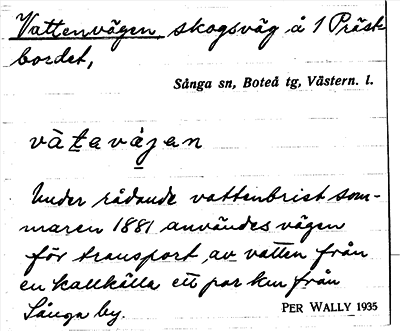 Vattenvägen, skogsväg å 1 Präst-
bordet,
Sånga sn, Boteå tg, Västern. l.
và t̲ a vá̲ j a n
Under rådande vattenbrist som-
maren 1881 användes vägen
för transport av vatten från
en kallkälla ett par km från
Sånga by.
PER WALLY 1935